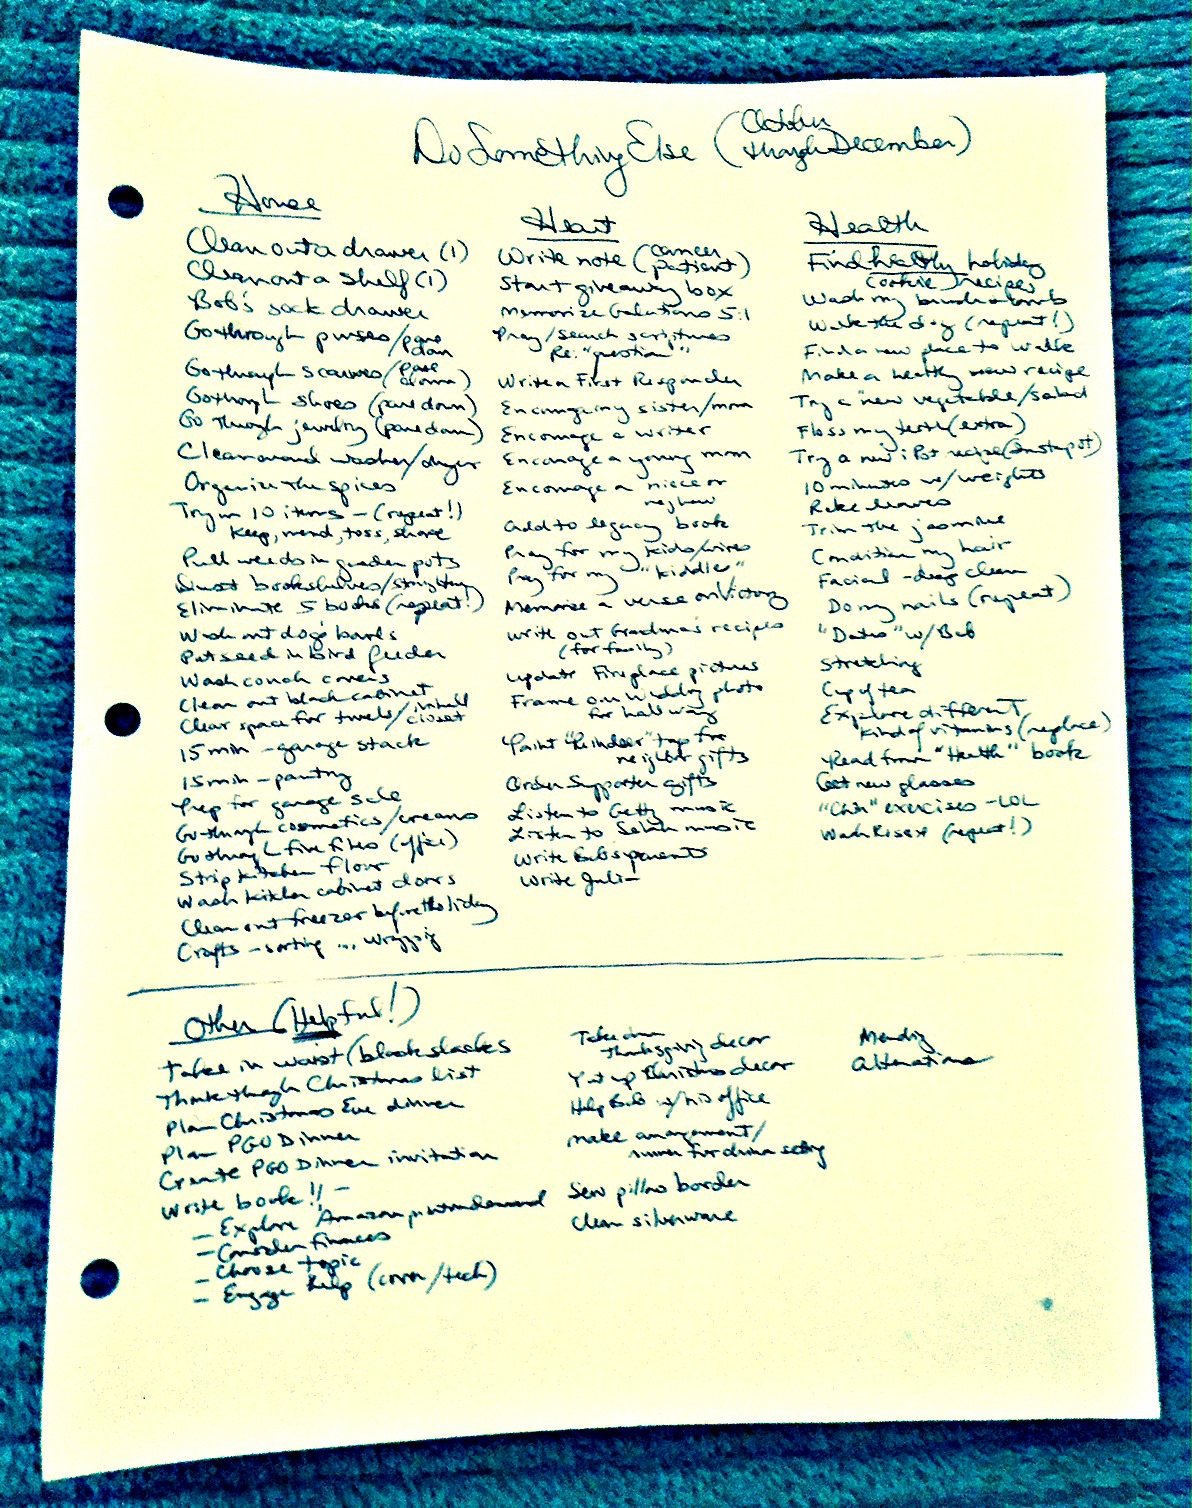 Do Something Else (October
through December)
House
Clean out a drawer (1)
Clean out a shelf (1)
Bob's sock drawer
Go through purses/pare
down
Go through scarves/(pare
down)
Go through shoes (pare down)
Go through jewelry (pare down)
Clean around washer/dryer
Organize the spices
Try on 10 items - (repeat!)
keep, mend, toss, share
Pull weeds in garden pots
Dust bookshelves/straighten
Eliminate 5 books (repeat!)
Wash out dog's bowls
Put seed in bird feeder
Wash couch covers
Clean out black cabinet
Clear space for towels/in hall
closet
15 min - garage stack
15 min - pantry
Prep for garage sale
Go through cosmetics/creams
Go through five files (office)
Strip kitchen floor
Wash kitchen cabinet doors
Clean out freezer before the holiday
Crafts - sorting ... wrapping
Heart
Write note (cancer
patient)
Start giveaway box
Memorize Galatians 5:1
Pray/search scriptures
Re: "question"
Write a First Responder
Encourage my sister/mom
Encourage a writer
Encourage a young mom
Encourage a niece or
nephew
Add to legacy book
Pray for my kids/wives
Pray for my "kiddles"
Memorize a verse on Victory
Write out Grandma's recipes
(for family)
Update Fireplace pictures
Frame our wedding photo
for hallway
Paint "Reindeer" tap for
neighbor gifts
Order Supporter gifts
Listen to Getty music
Listen to Selah music
Write Bob's parents
Write Juli-
Health
Find healthy holiday
(cookie) recipes
Wash my brush & comb
Walk the dog (repeat!)
Find a new place to walk
Make a healthy new recipe
Try a new vegetable/salad
Floss my teeth (extra)
Try a new iPot recipe (Instapot)
10 minutes w/ weights
Rake leaves
Trim the jasmine
Condition my hair
Facial - deep clean
Do my nails (repeat)
"Dates" w/ Bob
Stretching
Cup of tea
Explore different
kind of vitamins (replace)
Read from "Health" book
Get new glasses
"Chin" exercises - LOL
Wash (repeat!)
Other (Helpful!)
Take in waist (black slacks
Think through Christmas list
Plan Christmas Eve dinner
Plan PGO Dinner
Create PGO Dinner invitation
Write book!! -
- Explore Amazon print on demand
- Consider finances
- Choose topic
- Engage help (cover/tech)
Take down
Thanksgiving decor
Put up Christmas decor
Help Bob w/ his office
Make arrangement/
runner for china setting
Sew pillow border
Clean silverware
Mending
Alterations